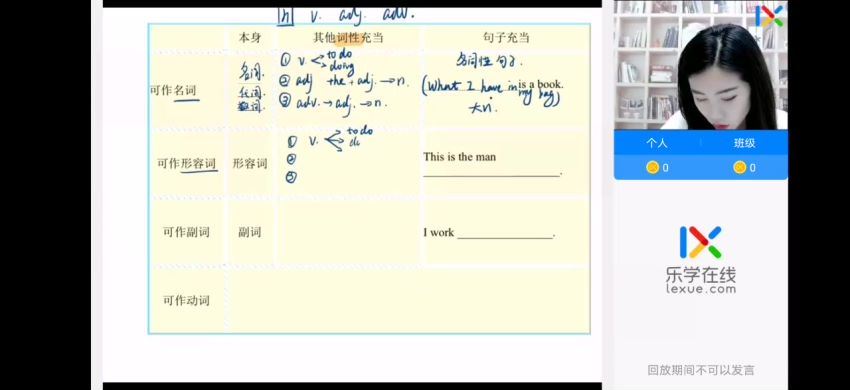 [n] v. adj. adv.
本身 其他词性充当 句子充当
可作名词
名词.
代词.
数词.
① v. to do
doing
② adj the + adj. → n.
③ adv. → adj. → n.
名词性句子.
(What I have in my bag) is a book.
大n.
可作形容词 形容词
① v. to do
do
②
③
This is the man
____________________.
可作副词 副词 I work ______________.
可作动词
个人 班级
0 0
乐学在线
lexue.com
回放期间不可以发言